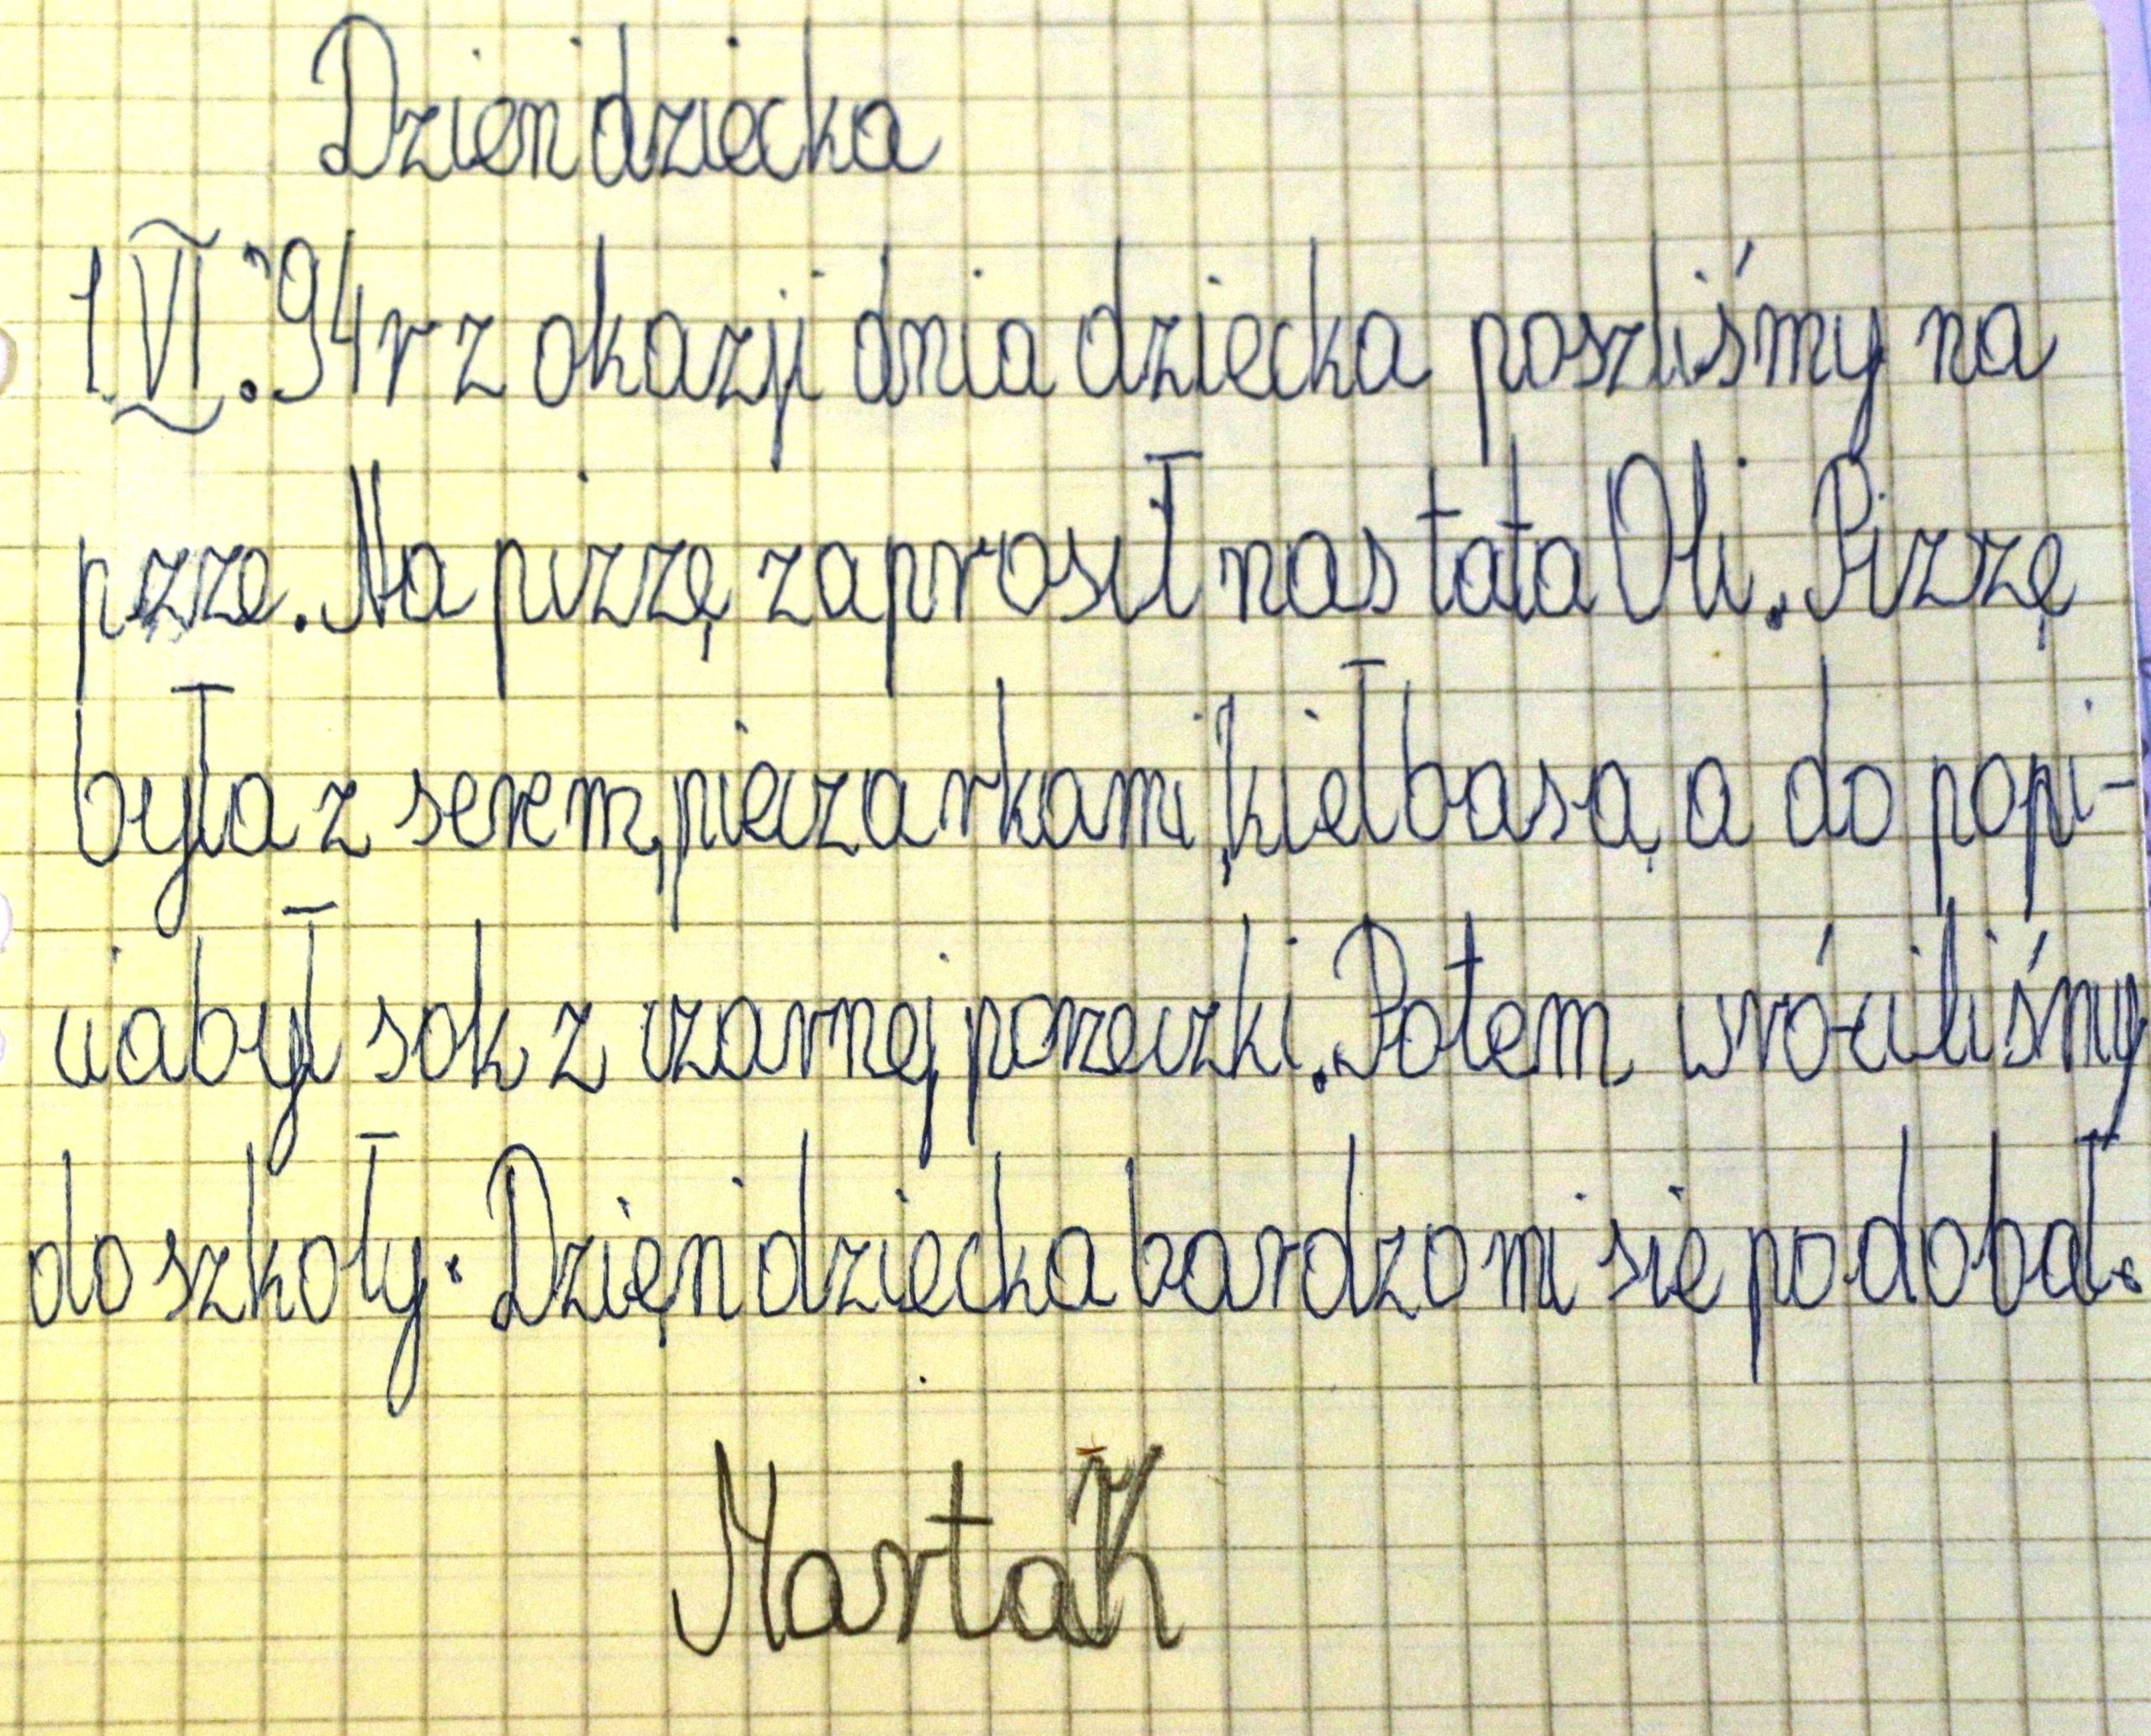 Dzien dziecka
1 VI.'94r z okazji dnia dziecka poszliśmy na
pzze. Na pizzę zaprosił nas tata Oli. Pizzę
była z serem, pieczarkami, kiełbasą a do popi-
cia był sok z czarnej pozeczki. Potem wróciliśmy
do szkoły. Dzięn dziecka bardzo mi sie podobał.
Marta K